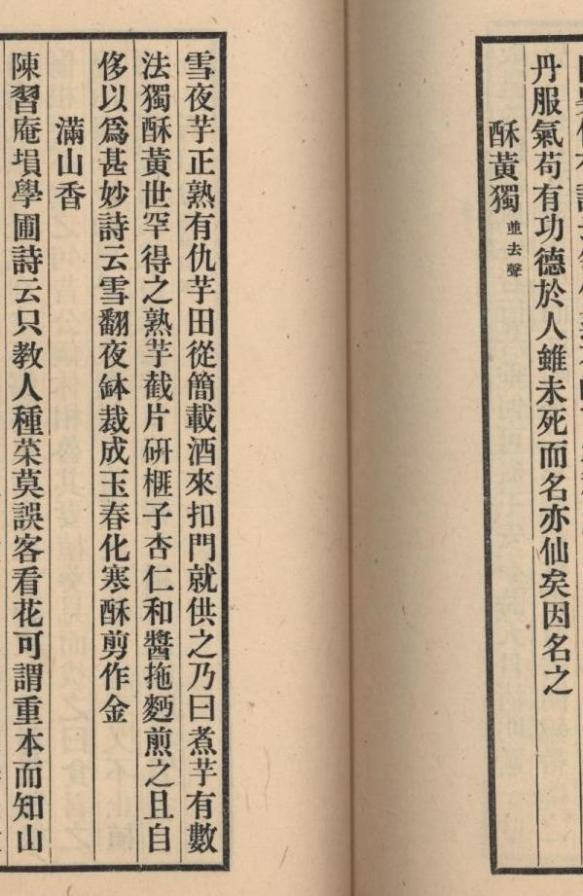 丹服氣苟有功德於人雖未死而名亦仙矣因名之
酥黃獨 並去聲
雪夜芋正熟有仇芋田從簡載酒來扣門就供之乃曰煮芋有數
法獨酥黃世罕得之熟芋截片研榧子杏仁和醬拖麪煎之且自
侈以爲甚妙詩云雪翻夜缽裁成玉春化寒酥剪作金
滿山香
陳習庵塤學圃詩云只教人種菜莫誤客看花可謂重本而知山